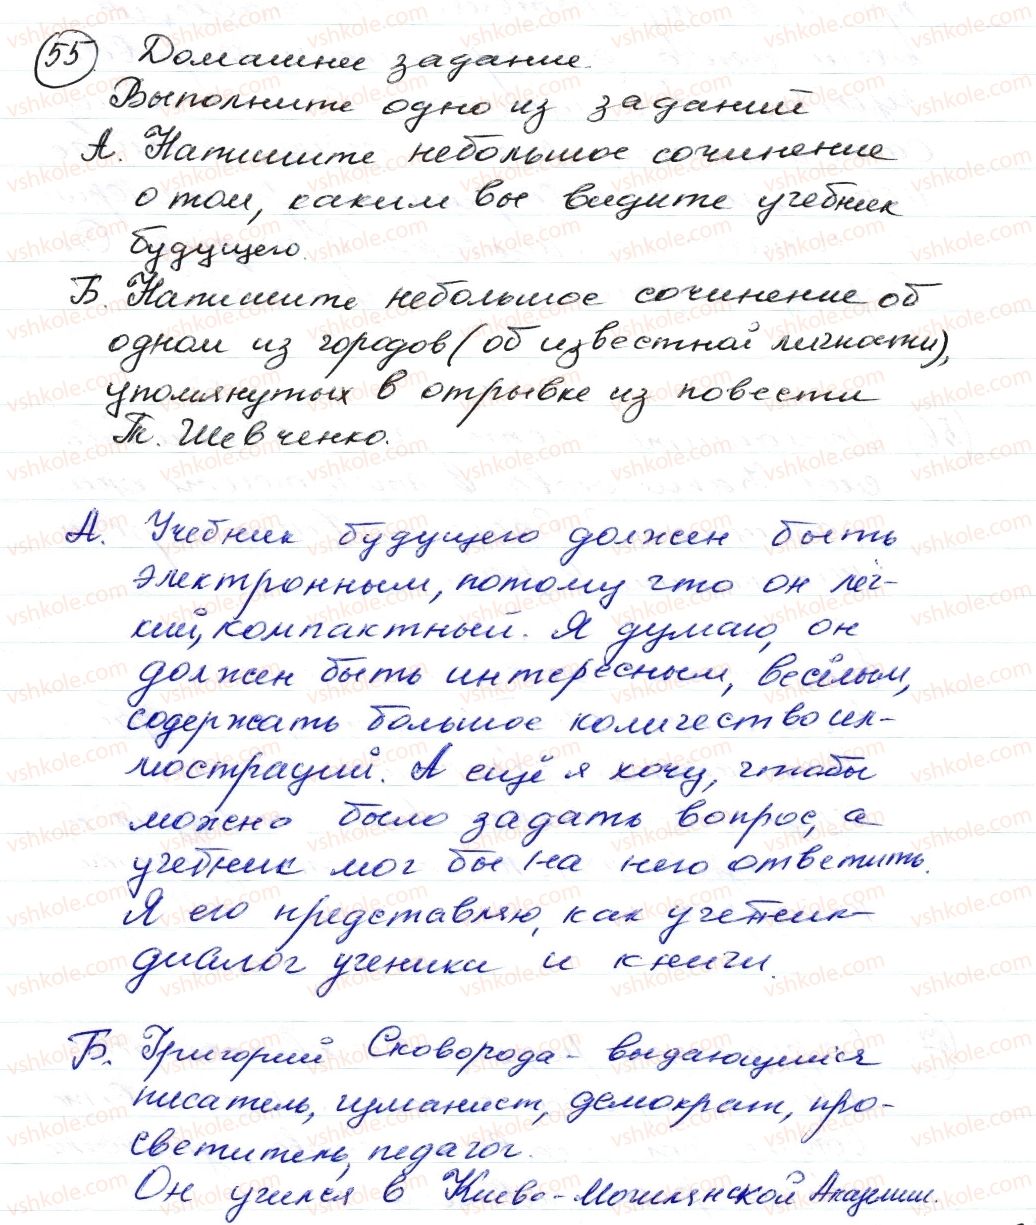 55. Домашнее задание.
Выполните одно из заданий
А. Напишите небольшое сочинение
о том, каким вы видите учебник
будущего.
Б. Напишите небольшое сочинение об
одном из городов (об известной личности),
упомянутых в отрывке из повести
Т. Шевченко.
А. Учебник будущего должен быть
электронным, потому что он лёг-
кий, компактный. Я думаю, он
должен быть интересным, весёлым,
содержать большое количество ил-
люстраций. А ещё я хочу, чтобы
можно было задать вопрос, а
учебник мог бы на него ответить.
Я его представляю, как учебник-
диалог ученики и книги.
Б. Григорий Сковорода - выдающийся
писатель, гуманист, демократ, про-
светитель, педагог.
Он учился в Киево-Могилянской Академии.